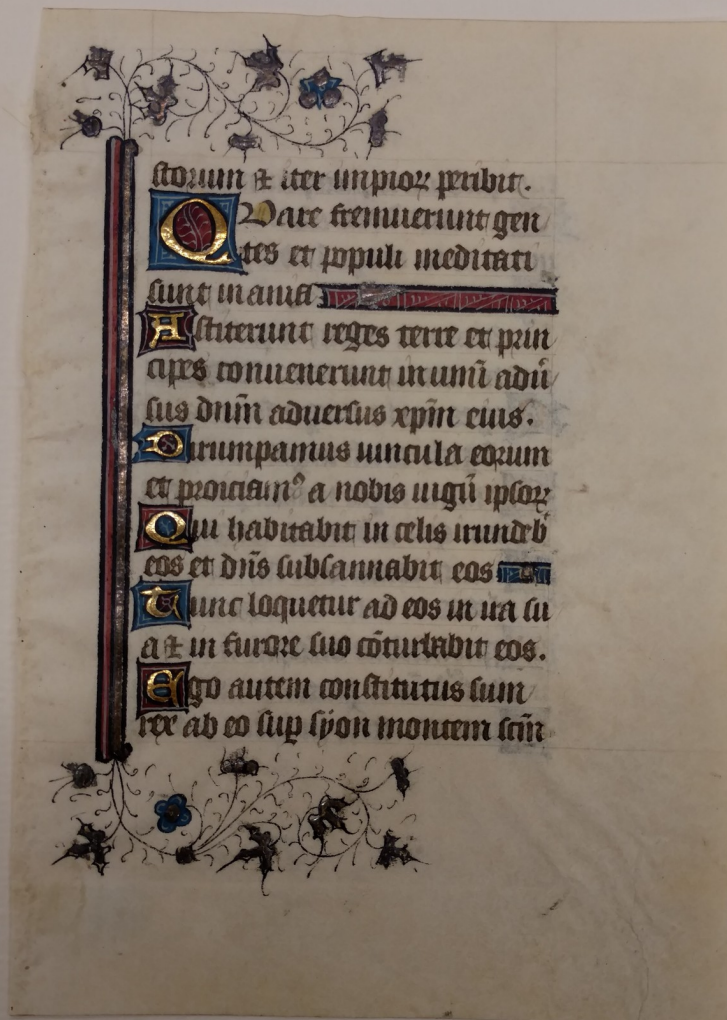 storum et iter impioꝝ peribit.
Quare fremuerunt gen
tes et populi meditati
sunt inania
Astiterunt reges terre et prin
cipes conuenerunt in unū adū
sus dn̄m aduersus xp̄m eius.
Dirumpamus uincula eorum
et proiciamꝰ a nobis iugū ipsoꝝ
Qui habitabit in celis irrideb̄
eos et dn̄s subsannabit eos
Tunc loquetur ad eos in ira su
a et in furore suo cōturbabit eos.
Ego autem constitutus sum
rex ab eo sup̄ syon montem sc̄m